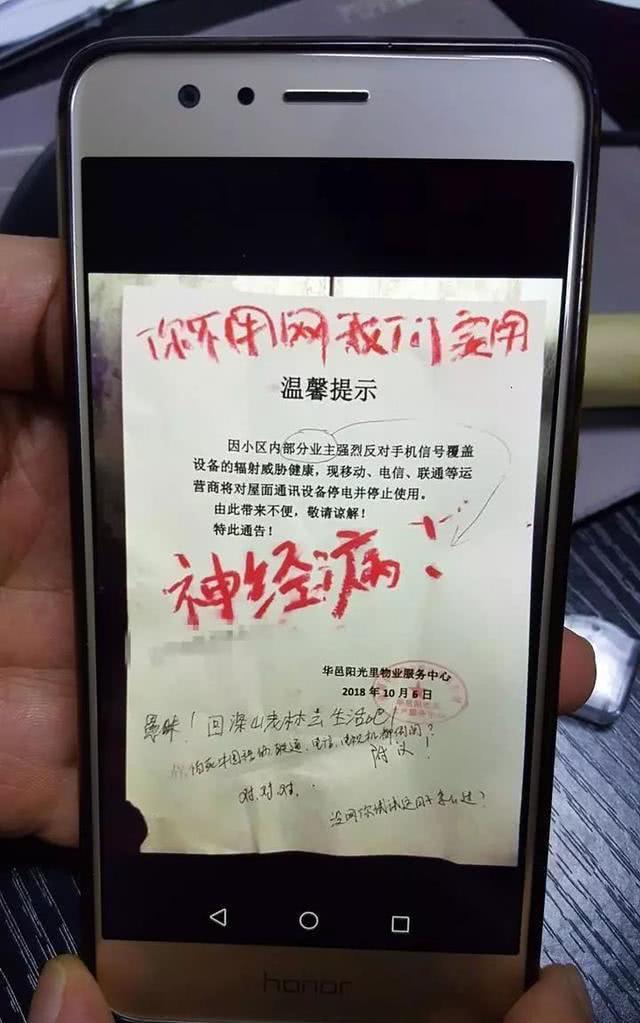 你不用网 我们要用
温馨提示
因小区内部分业主强烈反对手机信号覆盖
设备的辐射威胁健康，现移动、电信、联通等运
营商将对屋面通讯设备停电并停止使用。
由此带来不便，敬请谅解！
特此通告！
神经病！
华邑阳光里物业服务中心
2018年10月6日
愚昧！回深山老林去生活吧！
怕死
附议！
对.对.对.
没网你试试这日子怎么过？
honor